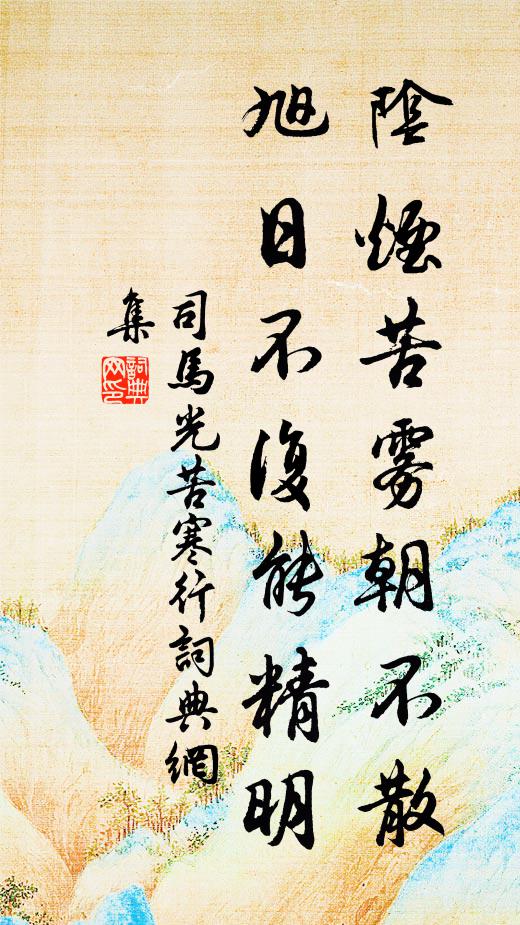 陰煙苦雾朝不散
旭日不復能精明
司馬光苦寒行詞典網
集
詞典网印